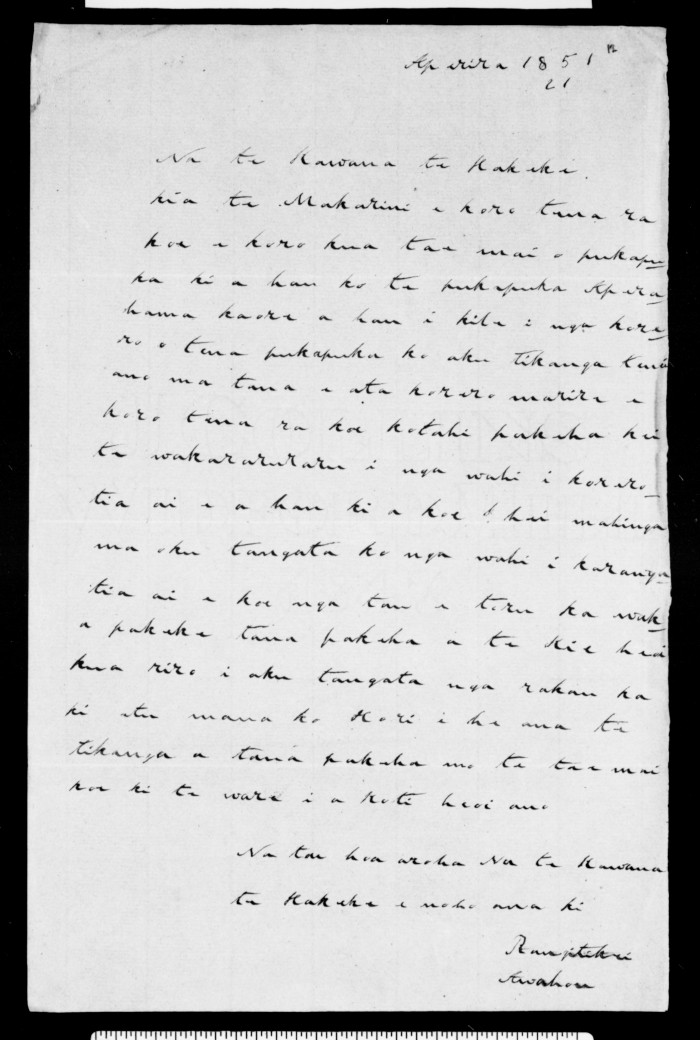 Aperira 1851
21
Na te Kawana te Hakeke.
kia te Makarini e koro tena ra
koe e koro kua tae mai o pukapu-
ka ki a hau ko te pukapuka Apera-
hama kaore a hau i kite i nga kore-
ro o tena pukapuka ko aku tikanga tena
ano ma tana e ata korero marire e
koro tena ra koe kotahi pakeha kei
te wakararuraru i nga wahi i korero-
tia ai e a hau ki a koe hei mahinga
ma oku tangata ko nga wahi i karanga
tia ai e koe nga tau e toru ka wak-
a pakeke tana pakeha a te Kie heoi
kua riro i aku tangata nga rakau ka
ki atu mana ko Hori i he ana te
tikanga a tana pakeha mo te tae mai
koe ki te ware i a Koti heoi ano
Na tou hoa aroha Na te Kawana
te Hakeke e noho ana ki
Awahou